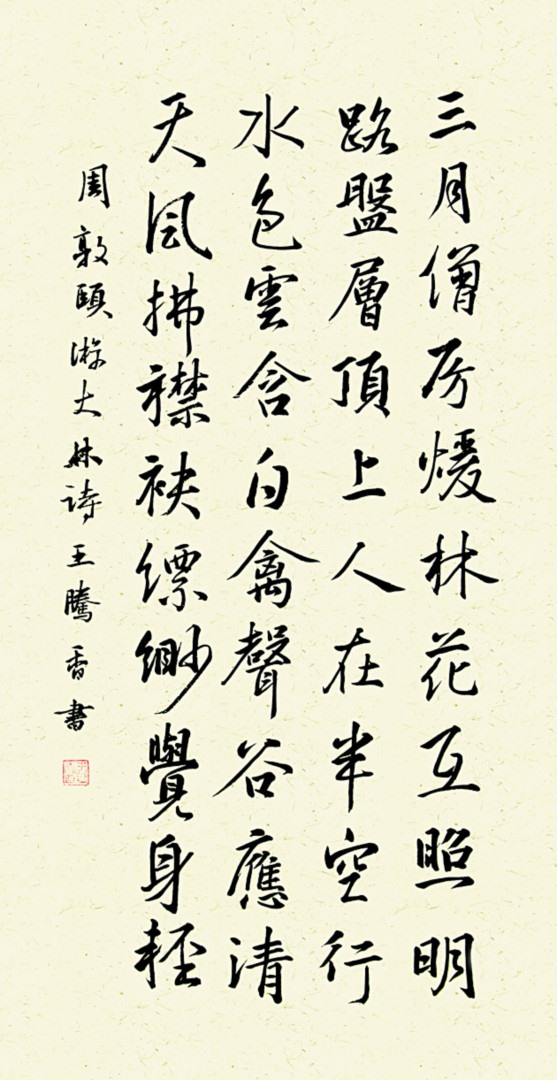 三月僧房煖林花互照明
路盤層頂上人在半空行
水色雲含白禽聲谷應清
天風拂襟袂縹緲覺身輕
周敦頤游大林詩王騰香書